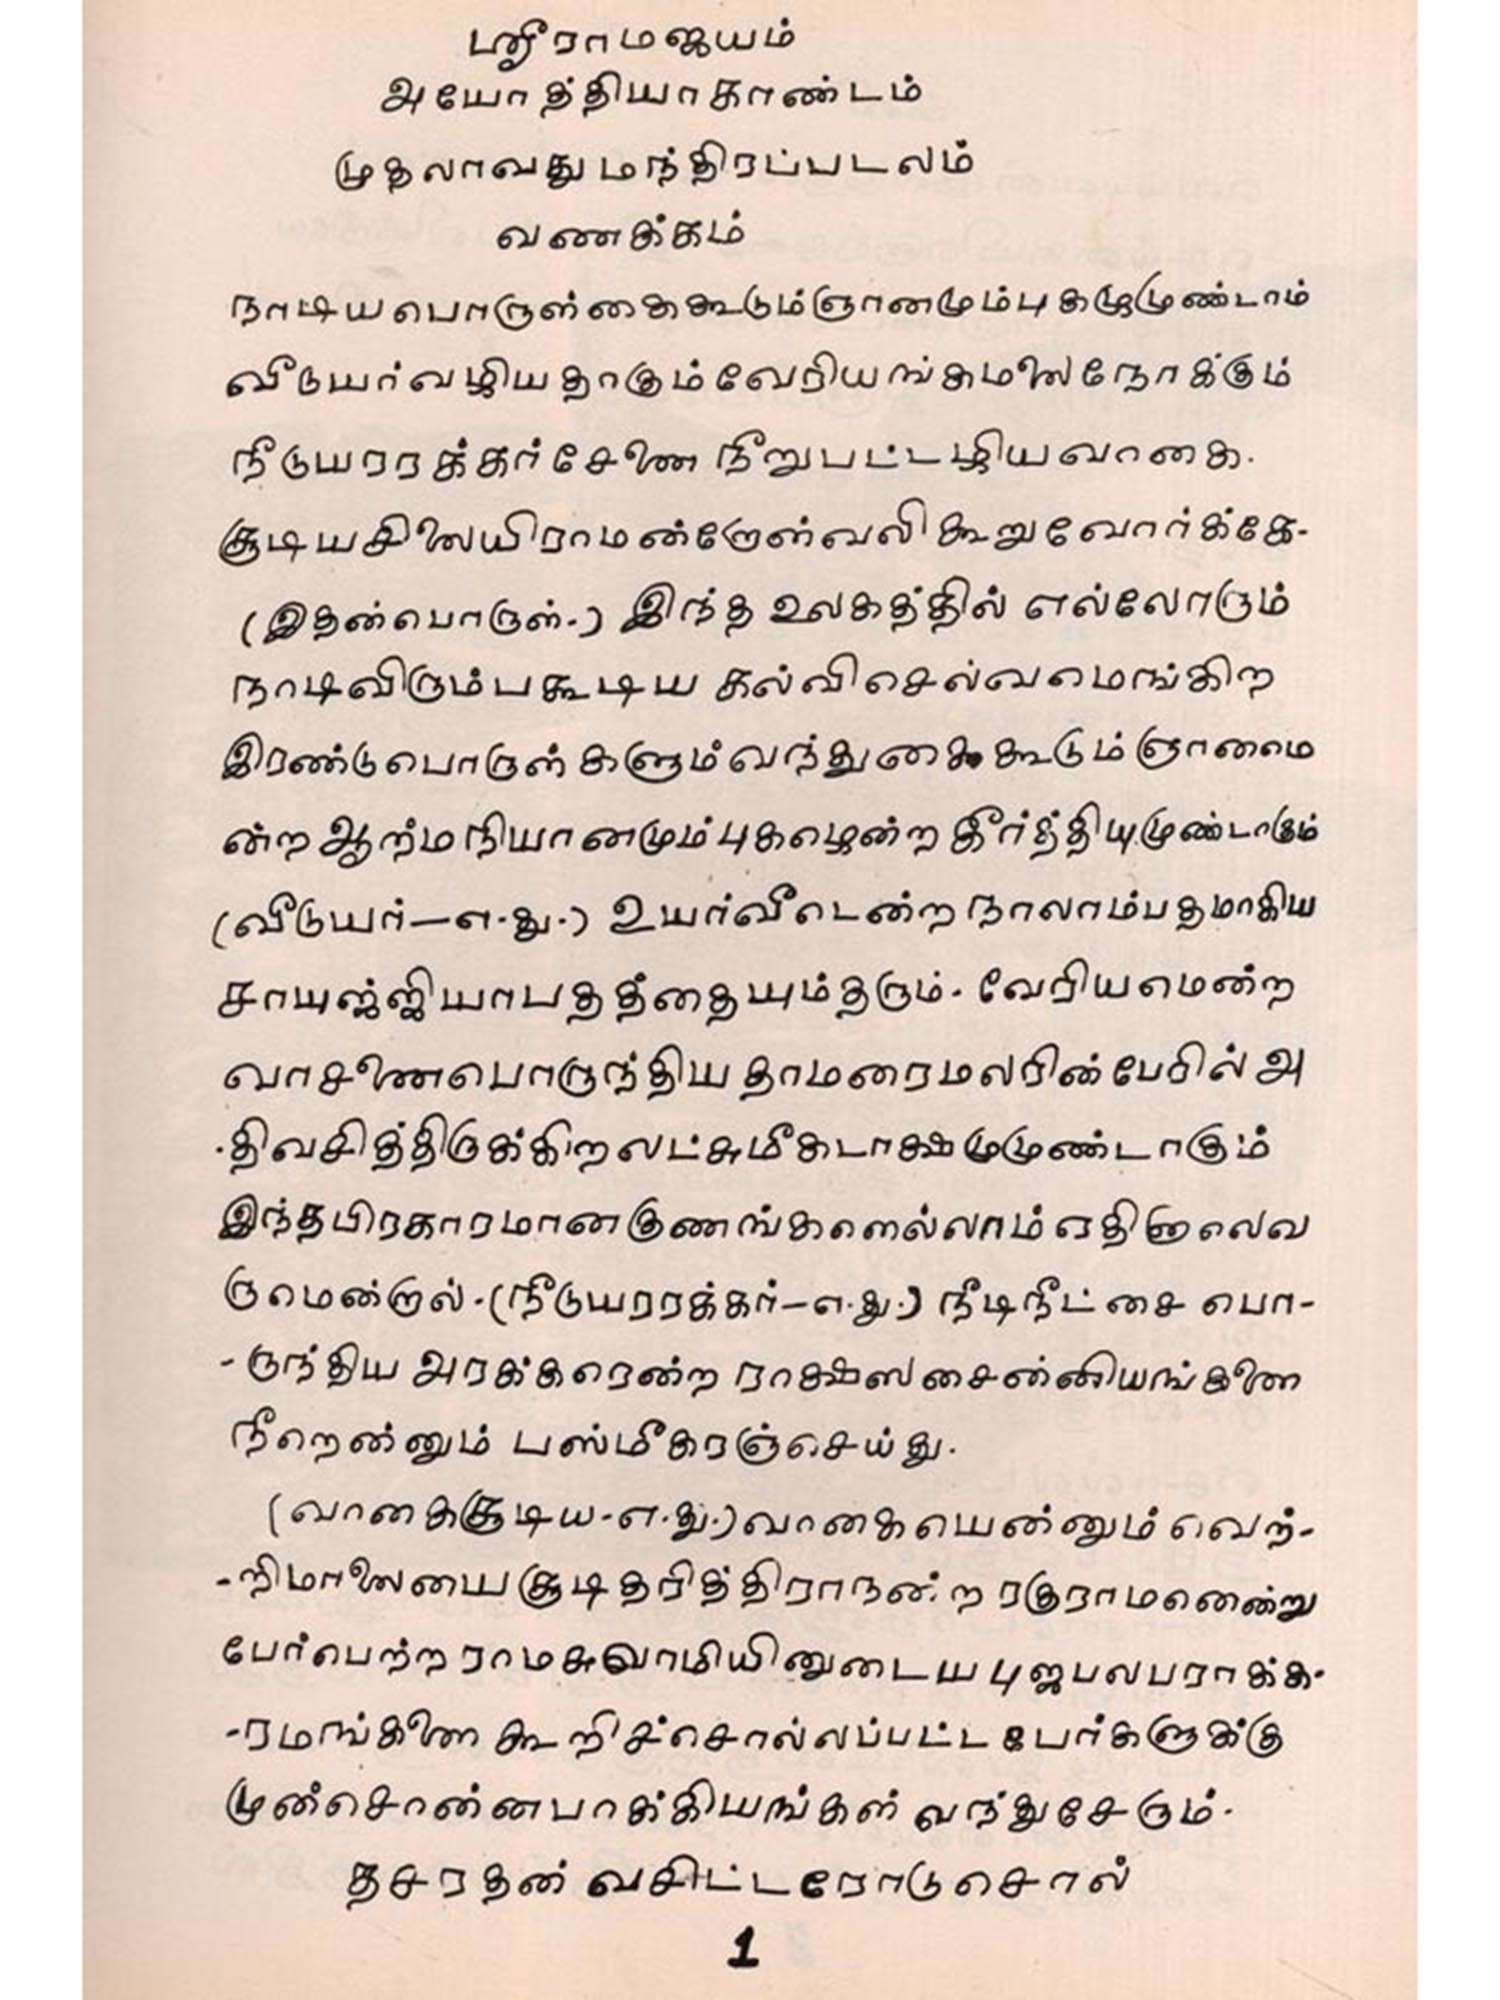 ஸ்ரீராமஜயம்
அயோத்தியாகாண்டம்
முதலாவது மந்திரப்படலம்
வணக்கம்
நாடிய பொருள் கைகூடும் ஞானமும் புகழுமுண்டாம்
வீடுயர் வழியதாகும் வேரியங்கமலை நோக்கும்
நீடுயரரக்கர் சேனை நீறுபட்டழிய வாகை.
சூடிய சிலையிராமன்றோள்வலி கூறுவோர்க்கே-
(இதன்பொருள்.) இந்த உலகத்தில் எல்லோரும்
நாடிவிரும்பகூடிய கல்வி செல்வமெங்கிற
இரண்டு பொருள்களும்வந்து கைகூடும் ஞானமெ
ன்ற ஆற்மநியானமும் புகழென்ற கீர்த்தியுமுண்டாகும்
(வீடுயர்—எ.து.) உயர்வீடென்ற நாலாம்பதமாகிய
சாயுஜ்ஜியாபதத்தையும்தரும். வேரியமென்ற
வாசனைபொருந்திய தாமரைமலரின்பேரில் அ
.திவசித்திருக்கிற லட்சுமீகடாக்ஷமுமுண்டாகும்
இந்தபிரகாரமானகுணங்களெல்லாம் ஏதினாலெவ
ருமென்றால்.(நீடுயரரக்கர்—எ.து.) நீடிநீட்சை பொ-
-ருந்திய அரக்கரென்ற ராக்ஷஸ சைன்னியங்களை
நீறென்னும் பஸ்மீகரஞ்செய்து.
(வாகைசூடிய-எ.து.)வாகையென்னும் வெற்-
-றிமாலையை சூடி தரித்திராநன்ற ரகுராமனென்று
பேர்பெற்ற ராமசுவாமியினுடைய புஜபலபராக்க-
-ரமங்களை கூறிச்சொல்லப்பட்ட பேர்களுக்கு
முன்சொன்னபாக்கியங்கள் வந்துசேரும்.
தசரதன் வசிட்டரோடுசொல்
1